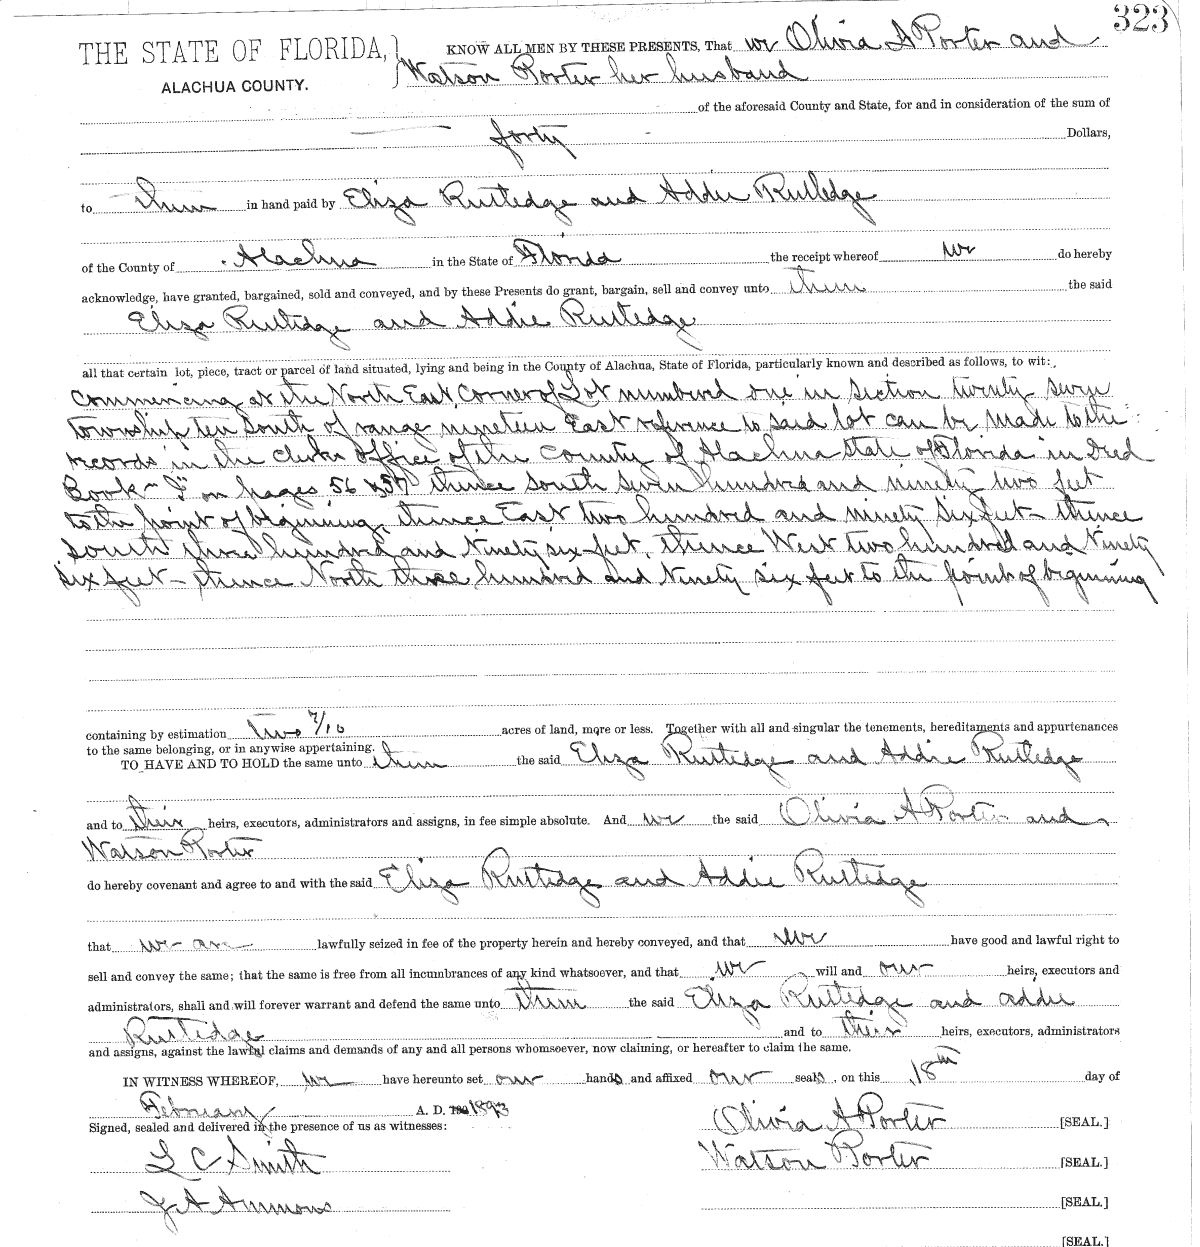 323
THE STATE OF FLORIDA, KNOW ALL MEN BY THESE PRESENTS, That we Olivia A Porter and
ALACHUA COUNTY. Watson Porter her husband
of the aforesaid County and State, for and in consideration of the sum of
forty Dollars,
to them in hand paid by Eliza Rutledge and Addie Rutledge
of the County of Alachua in the State of Florida the receipt whereof we do hereby
acknowledge, have granted, bargained, sold and conveyed, and by these Presents do grant, bargain, sell and convey unto them the said
Eliza Rutledge and Addie Rutledge
all that certain lot, piece, tract or parcel of land situated, lying and being in the County of Alachua, State of Florida, particularly known and described as follows, to wit:
Commencing at the North East Corner of Lot numbered one in section twenty seven
township ten South of range nineteen East reference to said lot can be made to the
records in the clerks office of the County of Alachua State of Florida in Deed
Book on pages 56 & 57 thence South seven hundred and ninety two feet
to the point of beginning, thence East two hundred and ninety six feet - thence
South three hundred and Ninety six feet, thence West two hundred and Ninety
six feet - thence North three hundred and Ninety six feet to the point of beginning
containing by estimation two 7/10 acres of land, more or less. Together with all and singular the tenements, hereditaments and appurtenances
to the same belonging, or in anywise appertaining.
TO HAVE AND TO HOLD the same unto them the said Eliza Rutledge and Addie Rutledge
and to their heirs, executors, administrators and assigns, in fee simple absolute. And we the said Olivia A Porter and
Watson Porter
do hereby covenant and agree to and with the said Eliza Rutledge and Addie Rutledge
that we are lawfully seized in fee of the property herein and hereby conveyed, and that we have good and lawful right to
sell and convey the same; that the same is free from all incumbrances of any kind whatsoever, and that we will and our heirs, executors and
administrators, shall and will forever warrant and defend the same unto them the said Eliza Rutledge and addie
Rutledge and to their heirs, executors, administrators
and assigns, against the lawful claims and demands of any and all persons whomsoever, now claiming, or hereafter to claim the same.
IN WITNESS WHEREOF, we have hereunto set our hands and affixed our seals, on this 18th day of
February A. D. 1893
Signed, sealed and delivered in the presence of us as witnesses: Olivia A Porter [SEAL.]
L C Smith Watson Porter [SEAL.]
J A Ammons [SEAL.]
[SEAL.]